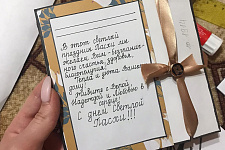 В этот светлый
праздник Пасхи мы
желаем Вам безгранич-
ного счастья, здоровья,
благополучия!
Тепла и уюта Вашему
дому!
Живите с Верой,
Надеждой и Любовью в
сердце!
С днём Светлой
Пасхи!!!